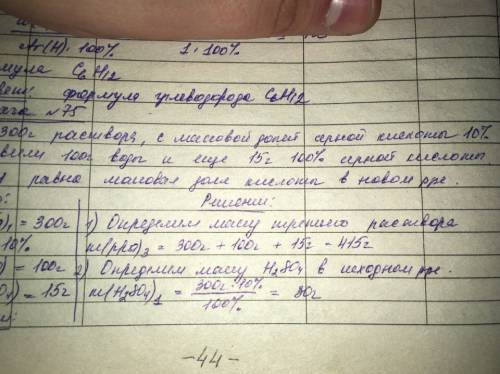 Ar(H)·100% 1·100%
мула C₆H₁₂
формула углеводорода C₆H₁₂
ача №75
300г раствора, с массовой долей серной кислоты 10%
100г воды и еще 15г 100% серной кислоты
равна массовая доля кислоты в новом р-ре.
Решение:
)₁ = 300г 1) Определяем массу третьего раствора
10% m(р-ра)₃ = 300г + 100г + 15г - 415г
) = 100г 2) Определяем массу H₂SO₄ в исходном р-ре.
O₄) = 15г m(H₂SO₄)₁ = 300г·10% / 100% = 30г
-44-